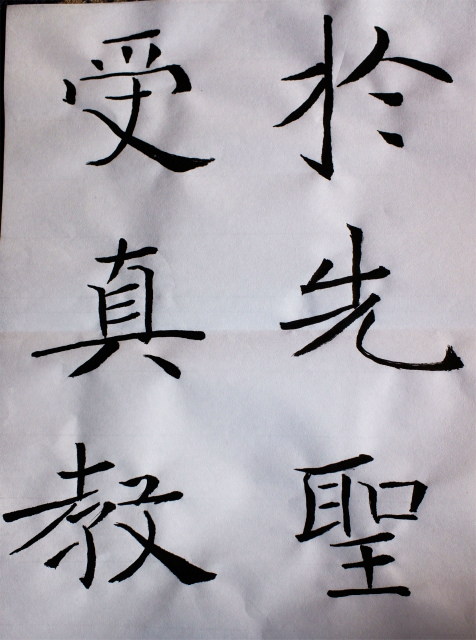 於先聖
受真教